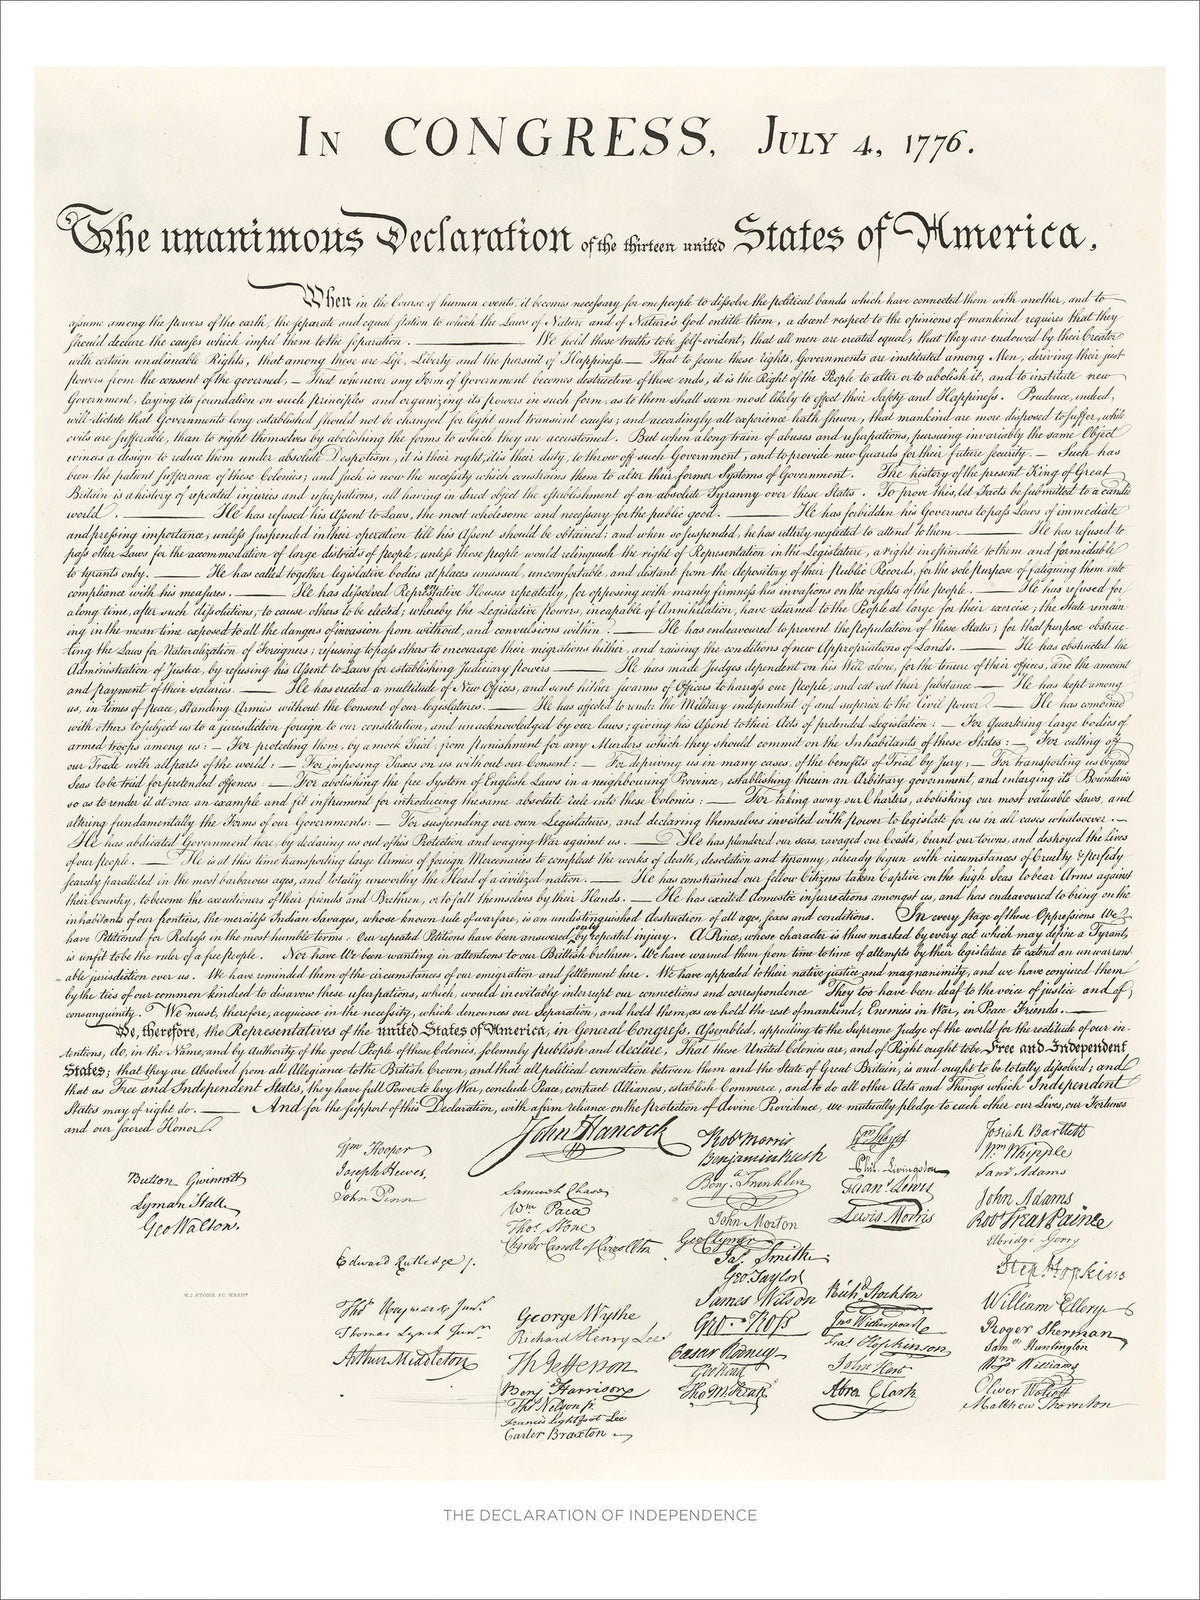 In CONGRESS, July 4, 1776.
The unanimous Declaration of the thirteen united States of America,
When in the Course of human events, it becomes necessary for one people to dissolve the political bands which have connected them with another, and to
assume among the powers of the earth, the separate and equal station to which the Laws of Nature and of Nature's God entitle them, a decent respect to the opinions of mankind requires that they
should declare the causes which impel them to the separation. — We hold these truths to be self-evident, that all men are created equal, that they are endowed by their Creator
with certain unalienable Rights, that among these are Life, Liberty and the pursuit of Happiness. — That to secure these rights, Governments are instituted among Men, deriving their just
powers from the consent of the governed, — That whenever any Form of Government becomes destructive of these ends, it is the Right of the People to alter or to abolish it, and to institute new
Government, laying its foundation on such principles and organizing its powers in such form, as to them shall seem most likely to effect their Safety and Happiness. Prudence, indeed,
will dictate that Governments long established should not be changed for light and transient causes; and accordingly all experience hath shewn, that mankind are more disposed to suffer, while
evils are sufferable, than to right themselves by abolishing the forms to which they are accustomed. But when a long train of abuses and usurpations, pursuing invariably the same Object
evinces a design to reduce them under absolute Despotism, it is their right, it is their duty, to throw off such Government, and to provide new Guards for their future security. — Such has
been the patient sufferance of these Colonies; and such is now the necessity which constrains them to alter their former Systems of Government. The history of the present King of Great
Britain is a history of repeated injuries and usurpations, all having in direct object the establishment of an absolute Tyranny over these States. To prove this, let Facts be submitted to a candid
world. — He has refused his Assent to Laws, the most wholesome and necessary for the public good. — He has forbidden his Governors to pass Laws of immediate
and pressing importance, unless suspended in their operation till his Assent should be obtained; and when so suspended, he has utterly neglected to attend to them. — He has refused to
pass other Laws for the accommodation of large districts of people, unless those people would relinquish the right of Representation in the Legislature, a right inestimable to them and formidable
to tyrants only. — He has called together legislative bodies at places unusual, uncomfortable, and distant from the depository of their Public Records, for the sole purpose of fatiguing them into
compliance with his measures. — He has dissolved Representative Houses repeatedly, for opposing with manly firmness his invasions on the rights of the people. — He has refused for
a long time, after such dissolutions, to cause others to be elected; whereby the Legislative powers, incapable of Annihilation, have returned to the People at large for their exercise; the State remain
ing in the mean time exposed to all the dangers of invasion from without, and convulsions within. — He has endeavoured to prevent the population of these States; for that purpose obstruc-
ting the Laws for Naturalization of Foreigners; refusing to pass others to encourage their migrations hither, and raising the conditions of new Appropriations of Lands. — He has obstructed the
Administration of Justice, by refusing his Assent to Laws for establishing Judiciary powers — He has made Judges dependent on his Will alone, for the tenure of their offices, and the amount
and payment of their salaries. — He has erected a multitude of New Offices, and sent hither swarms of Officers to harass our people, and eat out their substance — He has kept among
us, in times of peace, Standing Armies without the Consent of our legislatures. — He has affected to render the Military independent of and superior to the Civil power. — He has combined
with others to subject us to a jurisdiction foreign to our constitution, and unacknowledged by our laws; giving his Assent to their Acts of pretended Legislation: — For Quartering large bodies of
armed troops among us: — For protecting them, by a mock Trial, from punishment for any Murders which they should commit on the Inhabitants of these States: — For cutting off
our Trade with all parts of the world: — For imposing Taxes on us without our Consent: — For depriving us in many cases, of the benefits of Trial by Jury: — For transporting us beyond
Seas to be tried for pretended offences: — For abolishing the free System of English Laws in a neighbouring Province, establishing therein an Arbitrary government, and enlarging its Boundaries
so as to render it at once an example and fit instrument for introducing the same absolute rule into these Colonies: — For taking away our Charters, abolishing our most valuable Laws, and
altering fundamentally the Forms of our Governments: — For suspending our own Legislatures, and declaring themselves invested with power to legislate for us in all cases whatsoever. —
He has abdicated Government here, by declaring us out of his Protection and waging War against us. — He has plundered our seas, ravaged our Coasts, burnt our towns, and destroyed the lives
of our people. — He is at this time transporting large Armies of foreign Mercenaries to compleat the works of death, desolation and tyranny, already begun with circumstances of Cruelty & perfidy
scarcely paralleled in the most barbarous ages, and totally unworthy the Head of a civilized nation. — He has constrained our fellow Citizens taken Captive on the high Seas to bear Arms against
their Country, to become the executioners of their friends and Brethren, or to fall themselves by their Hands. — He has excited domestic insurrections amongst us, and has endeavoured to bring on the
inhabitants of our frontiers, the merciless Indian Savages, whose known rule of warfare, is an undistinguished destruction of all ages, sexes and conditions. In every stage of these Oppressions We
have Petitioned for Redress in the most humble terms: Our repeated Petitions have been answered only by repeated injury. A Prince, whose character is thus marked by every act which may define a Tyrant,
is unfit to be the ruler of a free people. Nor have We been wanting in attentions to our Brittish brethren. We have warned them from time to time of attempts by their legislature to extend an unwarrant-
able jurisdiction over us. We have reminded them of the circumstances of our emigration and settlement here. We have appealed to their native justice and magnanimity, and we have conjured them
by the ties of our common kindred to disavow these usurpations, which, would inevitably interrupt our connections and correspondence They too have been deaf to the voice of justice and of
consanguinity. We must, therefore, acquiesce in the necessity, which denounces our Separation, and hold them, as we hold the rest of mankind, Enemies in War, in Peace Friends. —
We, therefore, the Representatives of the united States of America, in General Congress, Assembled, appealing to the Supreme Judge of the world for the rectitude of our in-
tentions, do, in the Name, and by Authority of the good People of these Colonies, solemnly publish and declare, That these United Colonies are, and of Right ought to be Free and Independent
States; that they are Absolved from all Allegiance to the British Crown, and that all political connection between them and the State of Great Britain, is and ought to be totally dissolved; and
that as Free and Independent States, they have full Power to levy War, conclude Peace, contract Alliances, establish Commerce, and to do all other Acts and Things which Independent
States may of right do. — And for the support of this Declaration, with a firm reliance on the protection of divine Providence, we mutually pledge to each other our Lives, our Fortunes
and our sacred Honor.
Button Gwinnett
Lyman Hall
Geo Walton.
W.J. STONE SC. WASHN
Wm Hooper
Joseph Hewes,
John Penn
Edward Rutledge /.
Thos Heyward Junr.
Thomas Lynch Junr.
Arthur Middleton
John Hancock
Samuel Chase
Wm. Paca
Thos. Stone
Charles Carroll of Carrollton
George Wythe
Richard Henry Lee
Th Jefferson
Benj. Harrison
Thos Nelson jr.
Francis Lightfoot Lee
Carter Braxton
Robt Morris
Benjamin Rush
Benja. Franklin
John Morton
Geo Clymer
Jas. Smith
Geo. Taylor
James Wilson
Geo. Ross
Caesar Rodney
Geo Read
Tho M:Kean
Wm Floyd
Phil. Livingston
Frans. Lewis
Lewis Morris
Richd. Stockton
Jno Witherspoon
Fras. Hopkinson
John Hart
Abra Clark
Josiah Bartlett
Wm Whipple
Saml Adams
John Adams
Robt Treat Paine
Elbridge Gerry
Step. Hopkins
William Ellery
Roger Sherman
Saml Huntington
Wm Williams
Oliver Wolcott
Matthew Thornton
THE DECLARATION OF INDEPENDENCE